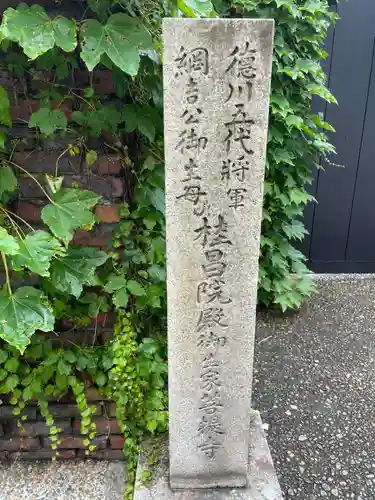 徳川五代将軍
綱吉公御生母
桂昌院殿御生家菩提寺